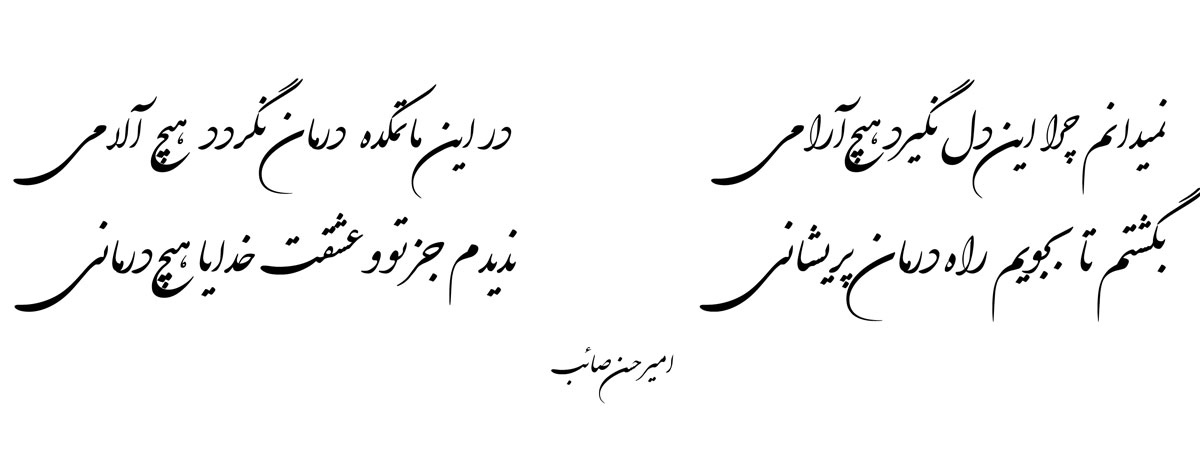 نمیدانم چرا این دل نگیرد هیچ آرامی
در این ماتمکده درمان نگردد هیچ آلامی
بگشتم تا بجویم راه درمان پریشانی
ندیدم جز تو و عشقت خدایا هیچ درمانی
امیرحسن صائب